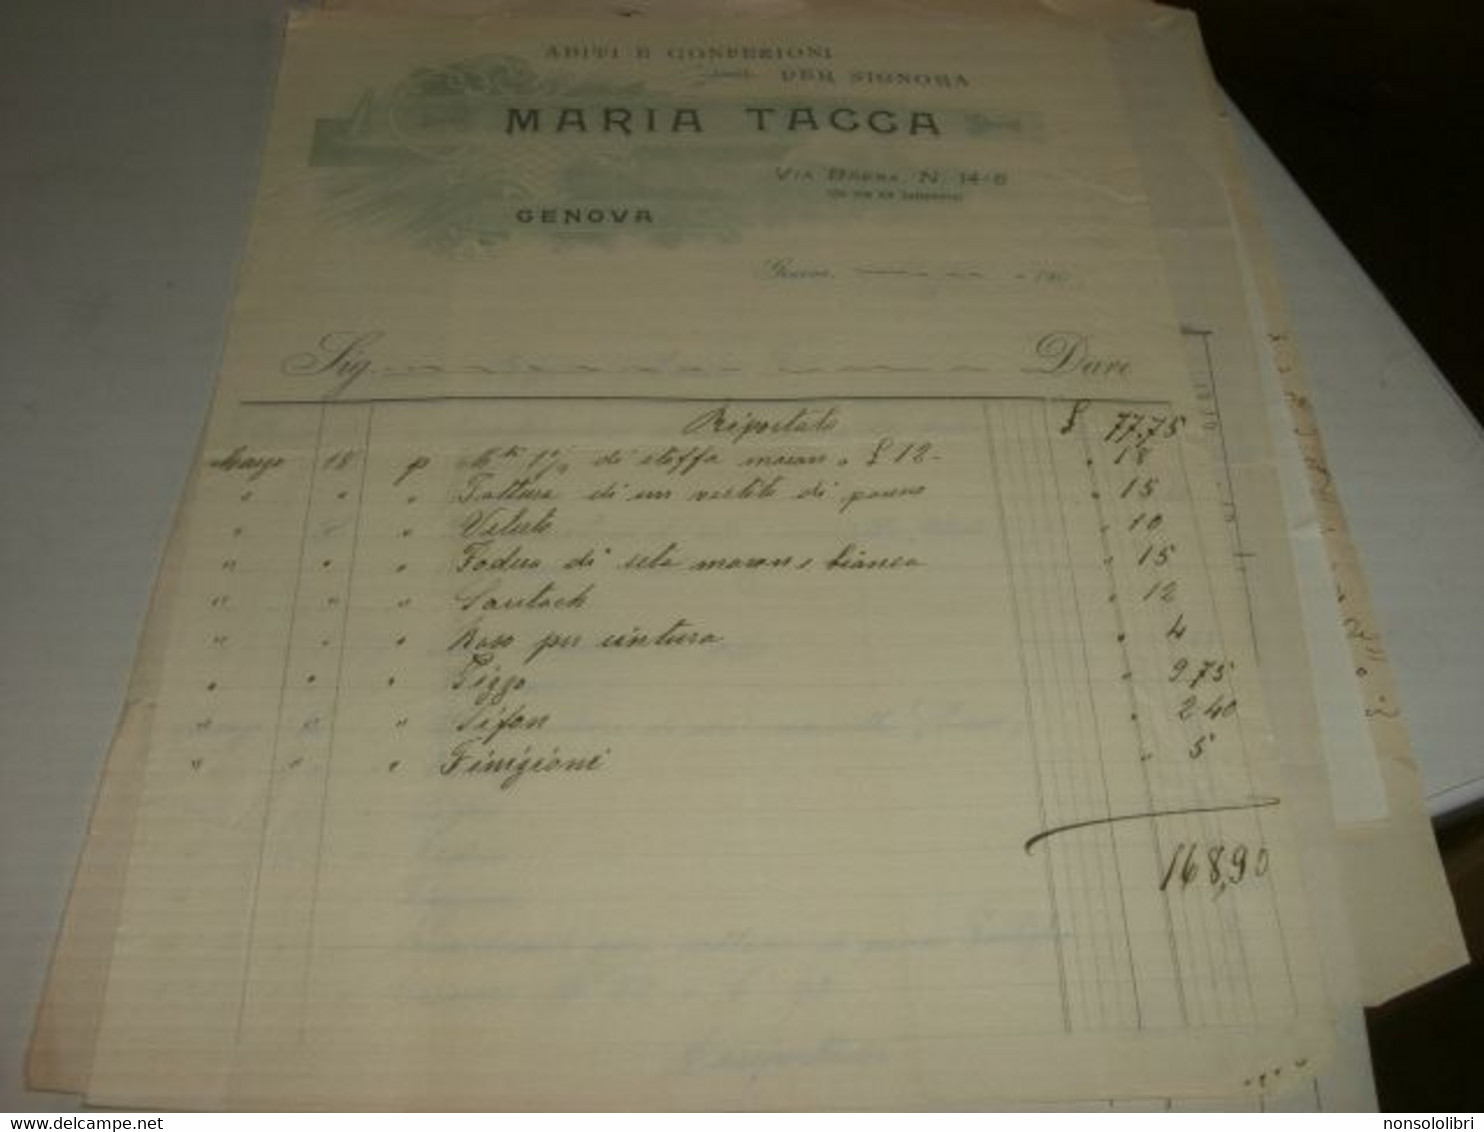 ABITI E CONFEZIONI
PER SIGNORA
MARIA TACCA
VIA N. 14-6
GENOVA
Genova, 190
Sig. Dare
Riportato £ 77,75
Marzo 18 p Mti 1 1/2 di stoffa maron a £ 12- " 18
" " " Fattura di un vestito di panno " 15
" " " Veluto " 10
" " " Fodera di seta maron e bianca " 15
" " " Soutach " 12
" " " Raso per cintura " 4
" " " Pizzo " 9 75
" " " Sifon " 2 40
" " " Finizioni " 5
168,90
www.delcampe.net
nonsololibri